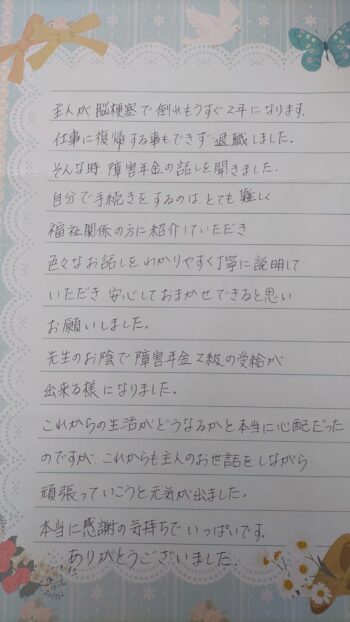 主人が脳梗塞で倒れもうすぐ2年になります.
仕事に復帰する事もできず退職しました.
そんな時障害年金の話しを聞きました.
自分で手続きをするのはとても難しく
福祉関係の方に紹介していただき
色々なお話しをわかりやすく丁寧に説明して
いただき安心しておまかせできると思い
お願いしました.
先生のお陰で障害年金2級の受給が
出来る様になりました.
これからの生活がどうなるかと本当に心配だった
のですが、これからも主人のお世話をしながら
頑張っていこうと元気が出ました.
本当に感謝の気持ちでいっぱいです.
ありがとうございました.